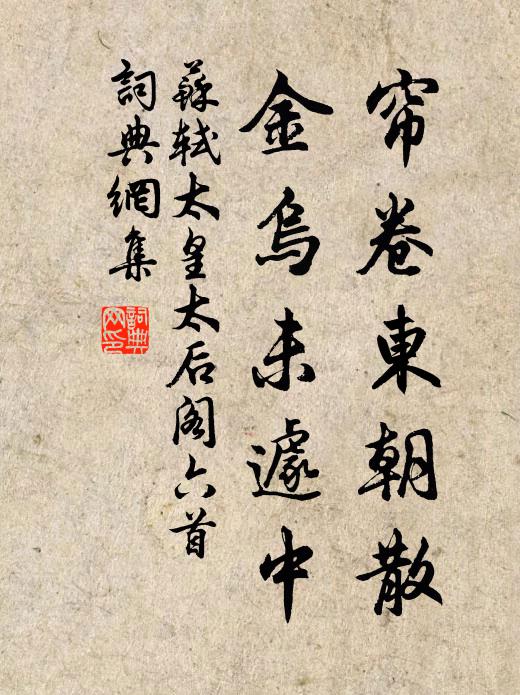 帘卷東朝散
金烏未遽中
蘇軾太皇太后阁六首
詞典網集
詞典网印